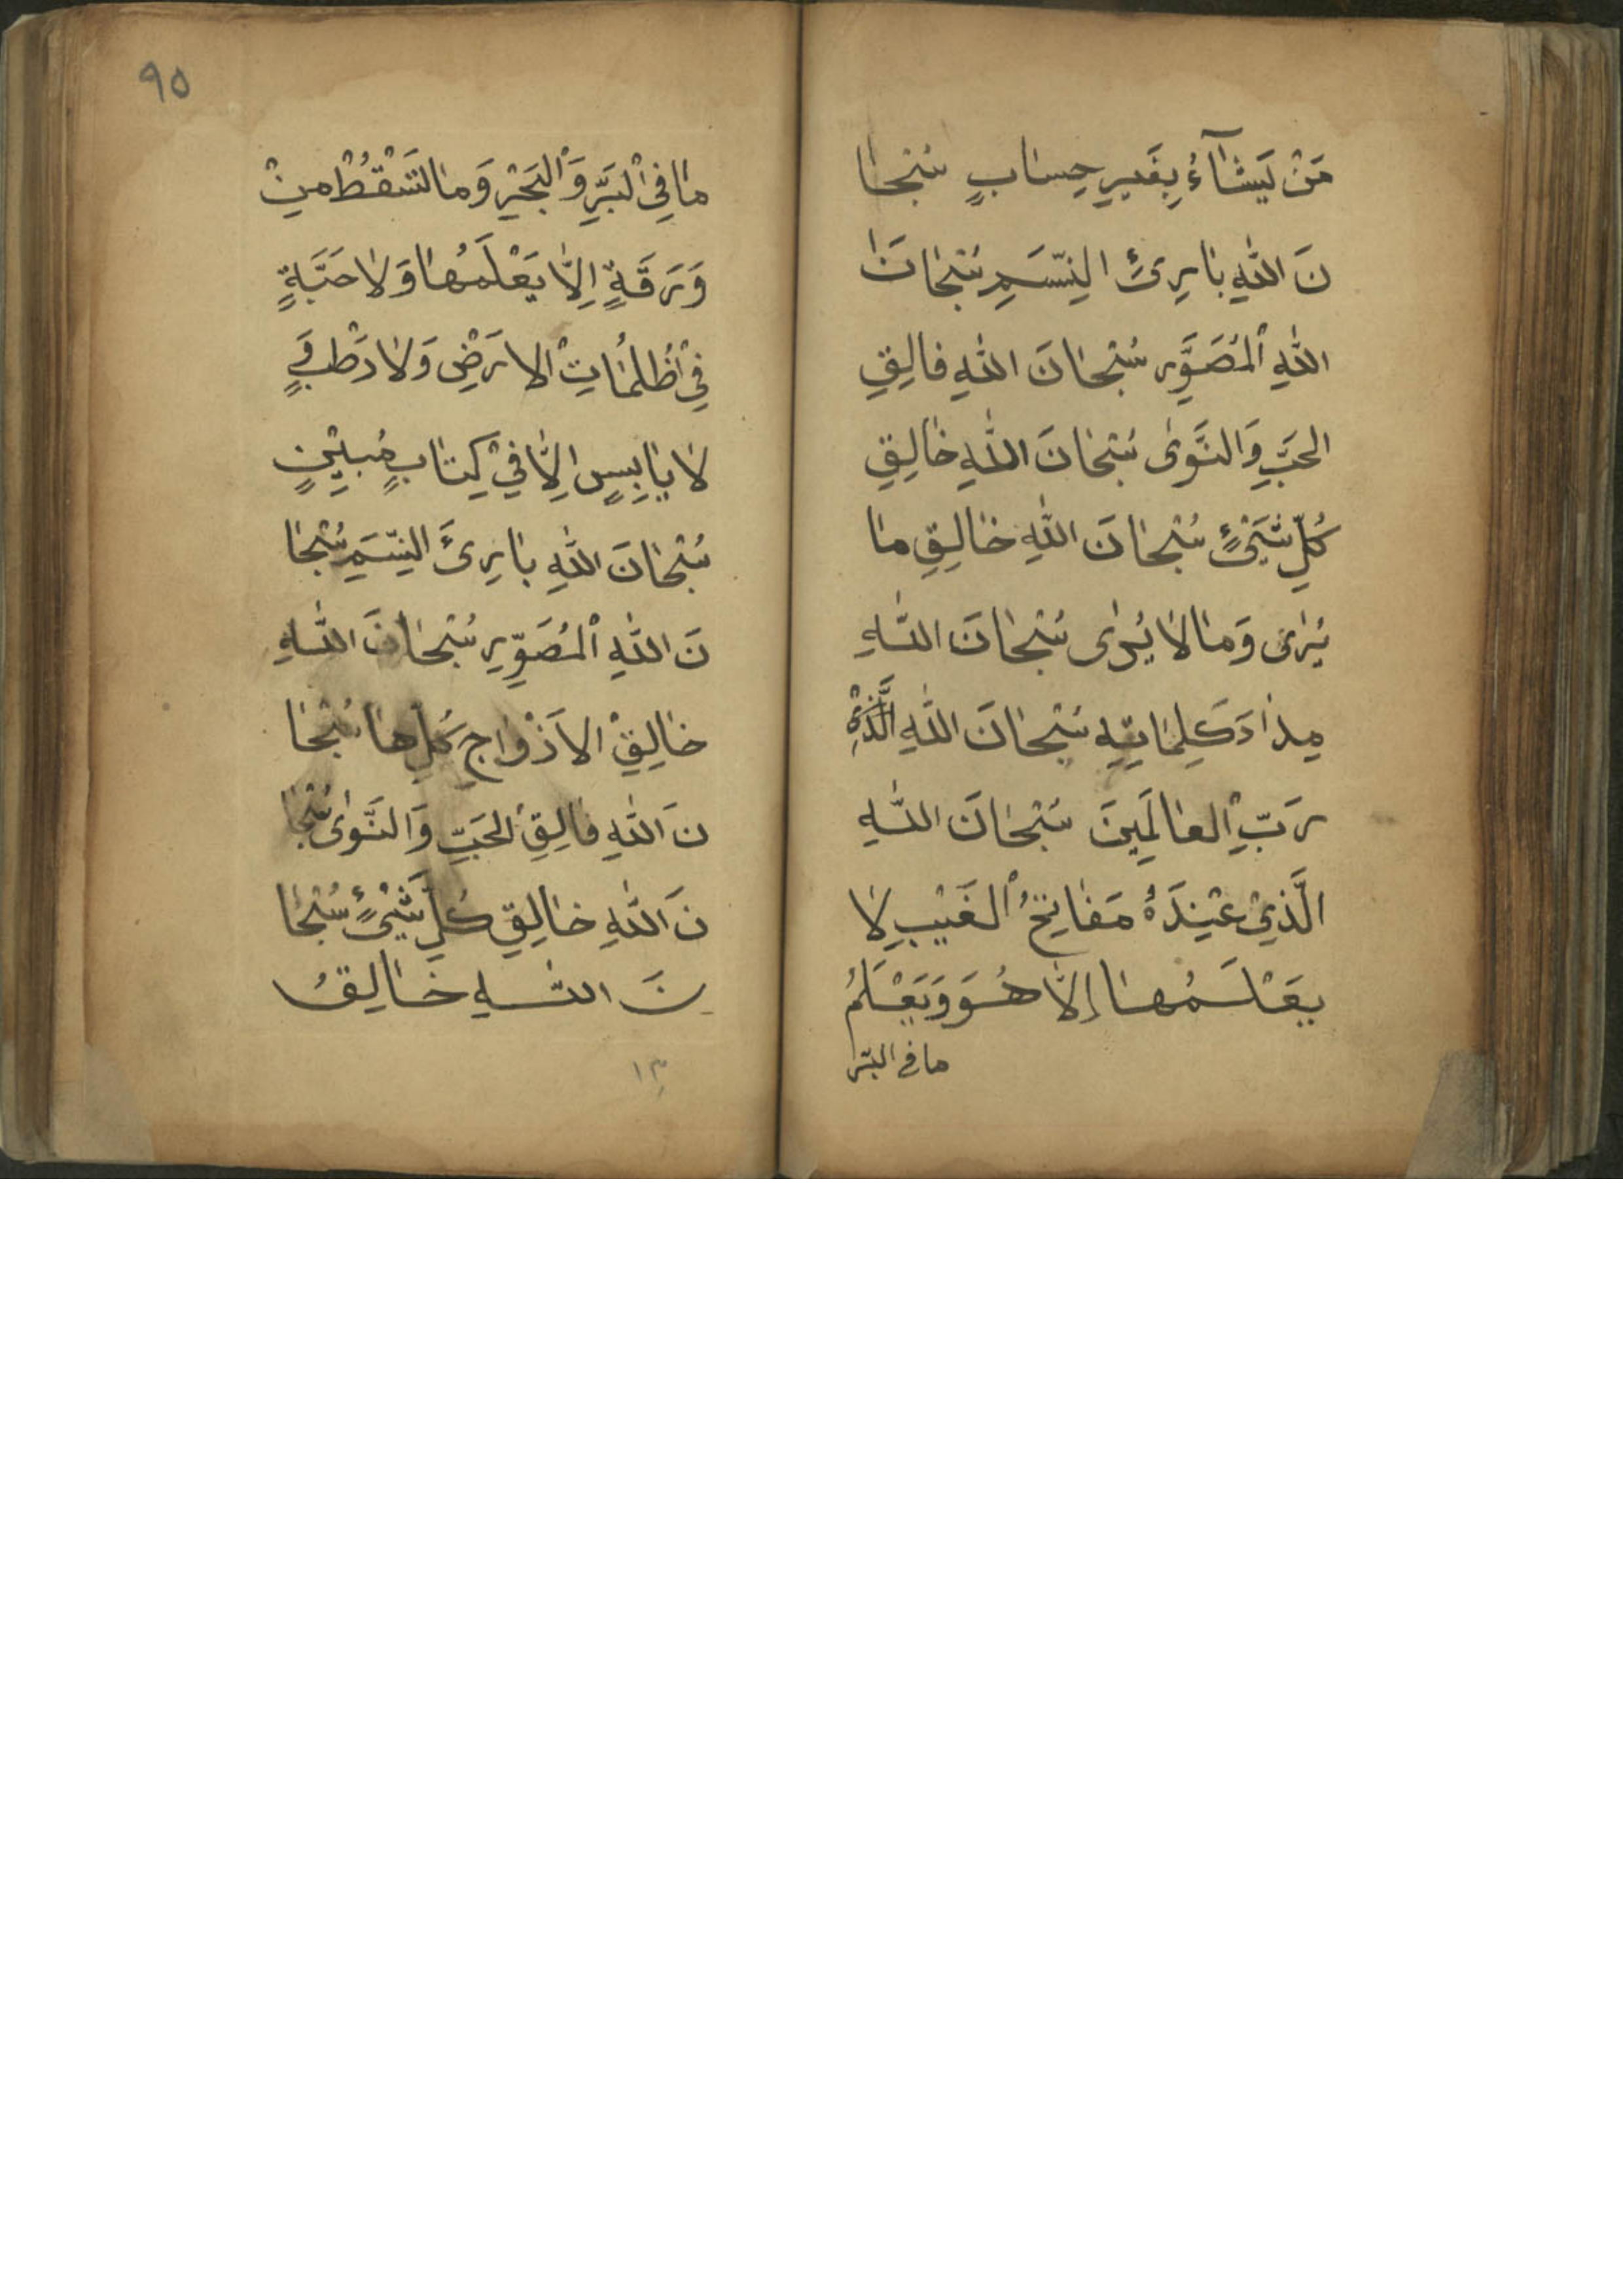 مَنْ يَشَآءُ بِغَيرِ حِسابٍ سُبْحا
نَ اللهِ بارِئِ النِّسَمِ سُبْحانَ
اللهِ الْمُصَوِّرِ سُبْحانَ اللهِ فالِقِ
الحَبِّ وَالنَّوٰى سُبْحانَ اللهِ خالِقِ
كُلِّ شَيْئٍ سُبْحانَ اللهِ خالِقِ ما
يُرٰى وَما لا يُرٰى سُبْحانَ اللهِ
مِدادَ كَلِماتِهِ سُبْحانَ اللهِ
رَبِّ الْعالَمِينَ سُبْحانَ اللهِ
الَّذِيْ عِنْدَهُ مَفاتِحُ الْغَيْبِ لا
يَعْلَمُها إِلاَّ هُوَ وَيَعْلَمُ
ما فى البَرّ
٩٥
ما فِى الْبَرِّ وَالْبَحْرِ وَما تَسْقُطُ مِنْ
وَرَقَةٍ اِلاَّ يَعْلَمُها وَلا حَبَّةٍ
فِيْ ظُلُماتِ الارَضِ وَلا رَطْبٍ وَ
لا يابِسٍ اِلاَّ فِيْ كِتابٍ مُبِيْنٍ
سُبْحانَ اللهِ بارِئَ النِّسَمِ سُبْحا
نَ اللهِ الْمُصَوِّرِ سُبْحانَ اللهِ
خالِقِ الاَزْواجِ كُلِّها سُبْحا
نَ اللهِ فالِقِ الْحَبِّ وَالنَّوٰى سُبْحا
نَ اللهِ خالِقِ كُلِّ شَيْئٍ سُبْحا
نَ اللهِ خالِقُ